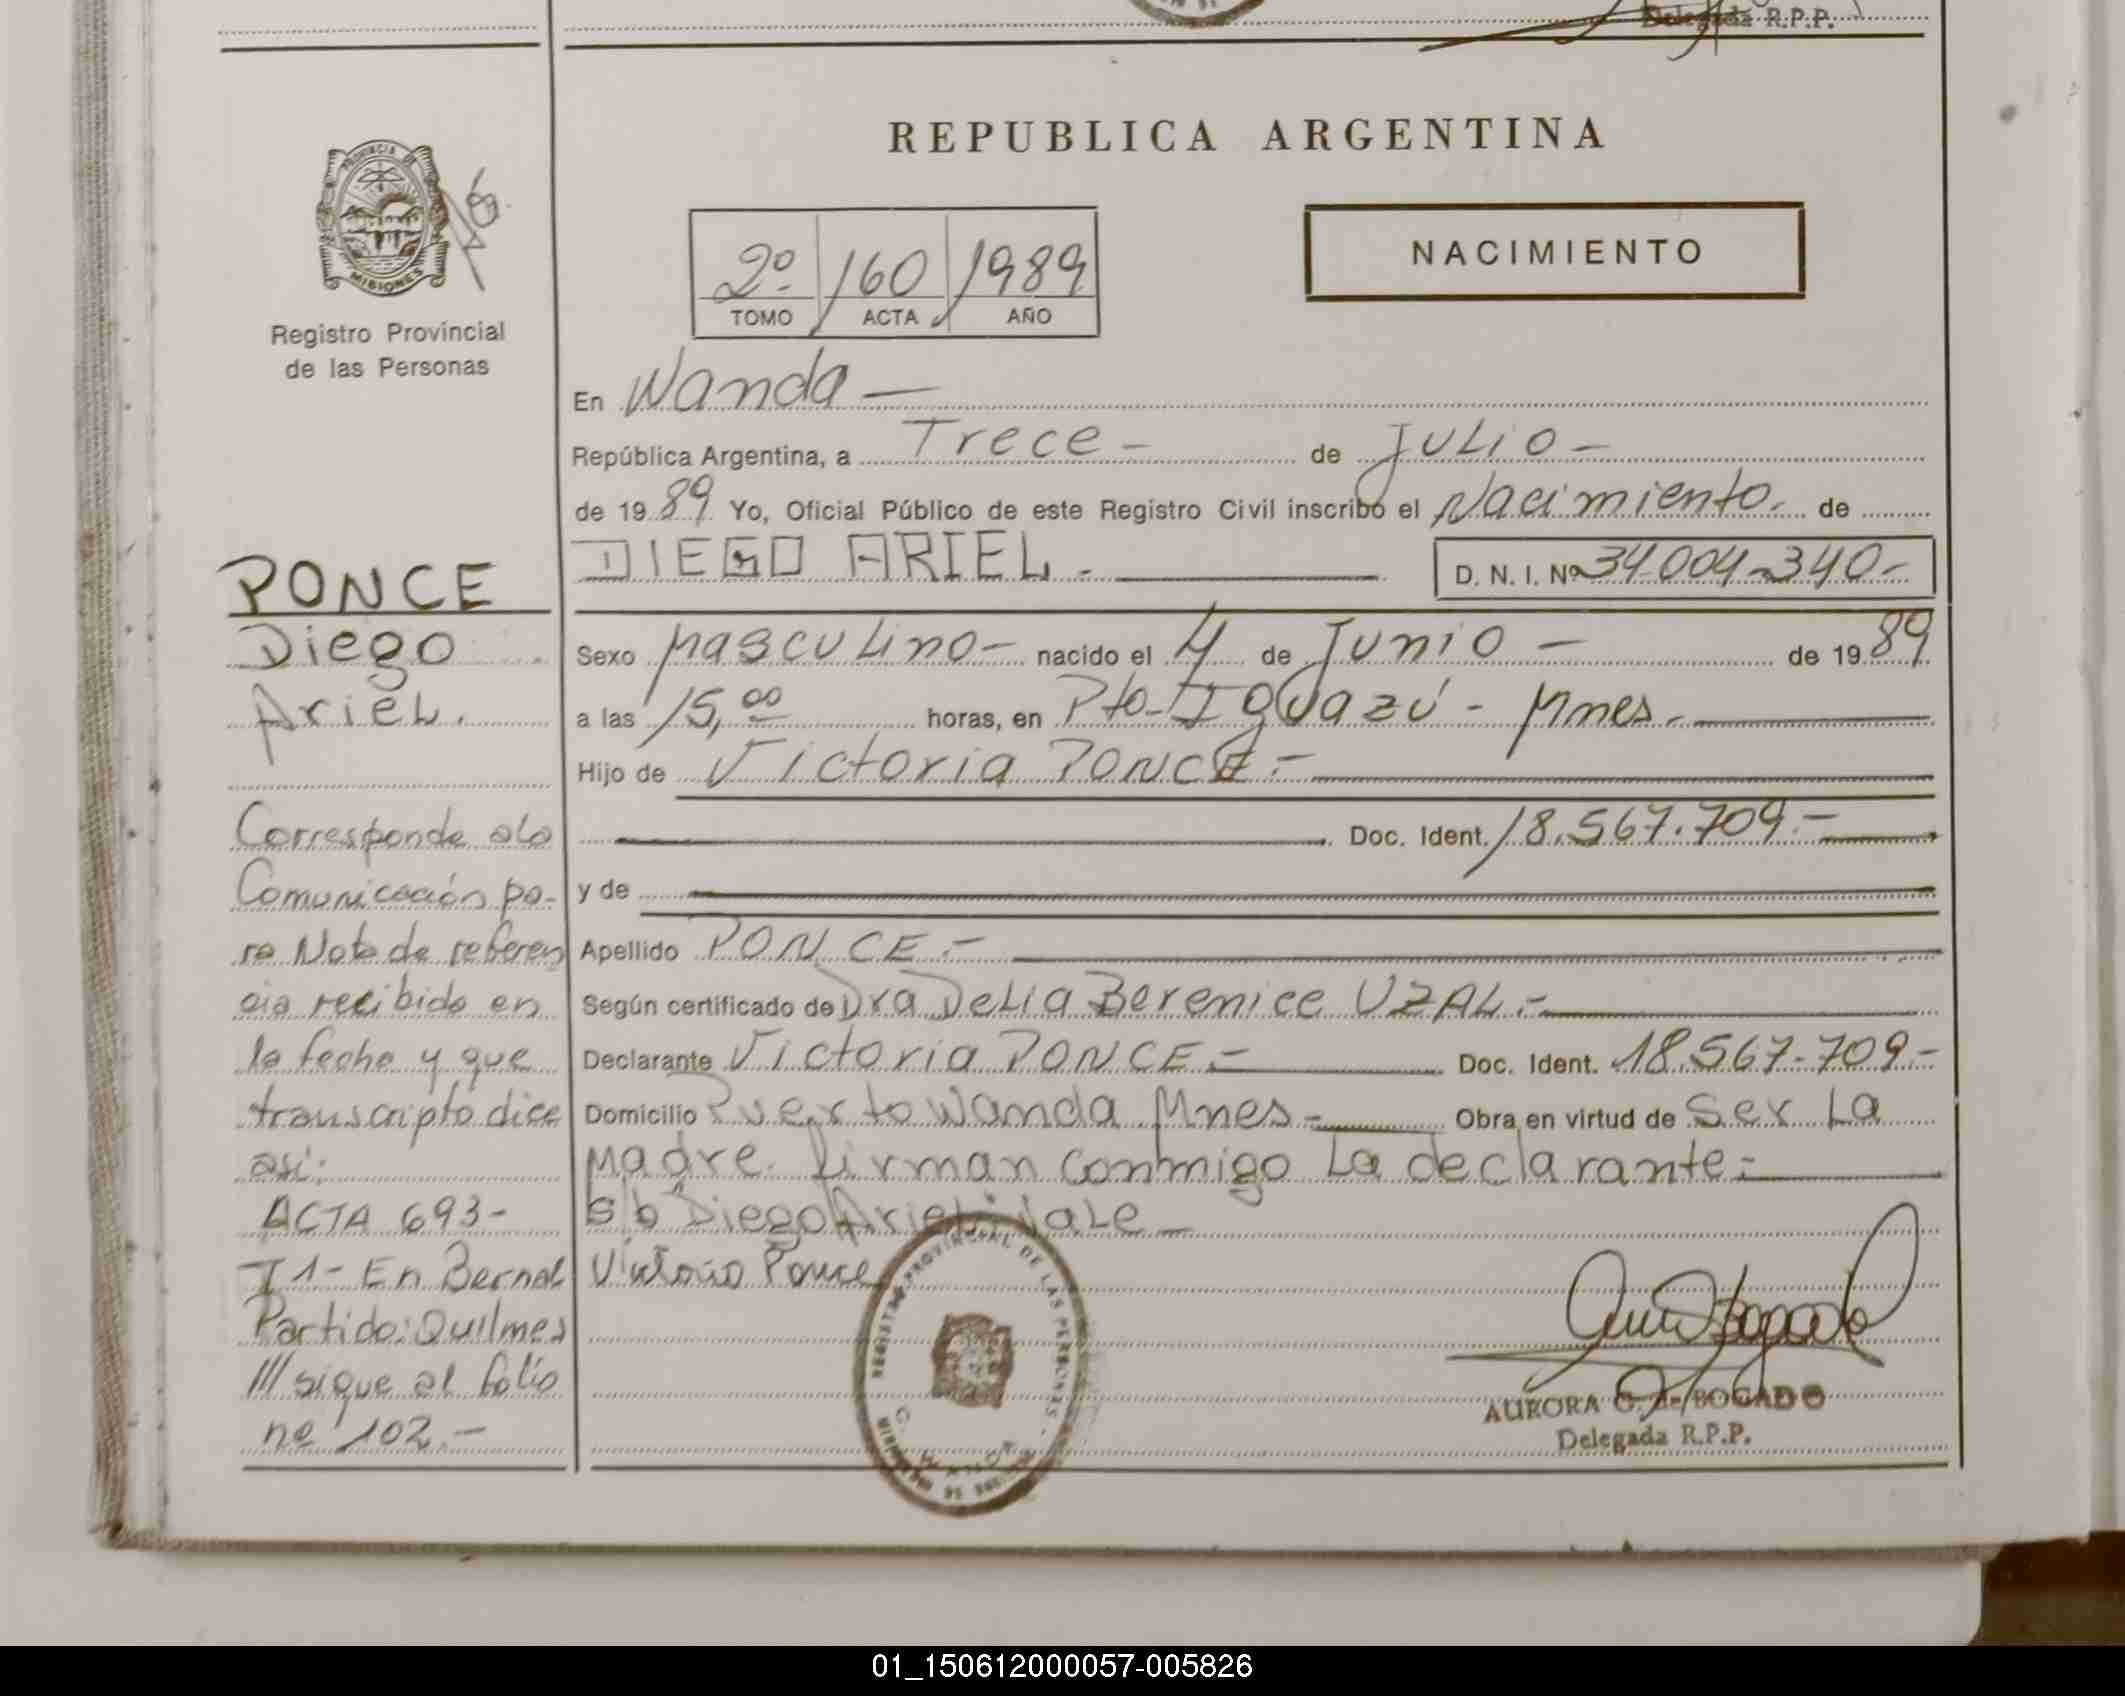 Delegada R.P.P.
REPUBLICA ARGENTINA
PROVINCIA DE
MISIONES
Registro Provincial
de las Personas
2º 160 1989
TOMO ACTA AÑO
NACIMIENTO
En Wanda —
República Argentina, a Trece - de Julio -
de 1989 Yo, Oficial Público de este Registro Civil inscribo el Nacimiento. de
DIEGO ARIEL. - D. N. I. Nº 34.004.340.-
Sexo Masculino - nacido el 4 de Junio - de 1989
a las 15,00 horas, en Pto. Iguazú - Mnes.
Hijo de Victoria PONCE.-
Doc. Ident. 18.567.709.-
y de
Apellido PONCE.-
Según certificado de Dra Delia Berenice UZAL.-
Declarante Victoria PONCE.- Doc. Ident. 18.567.709.-
Domicilio Puerto Wanda Mnes.- Obra en virtud de Ser La
Madre. Firman conmigo La declarante.-
S/b "Diego Ariel" Vale -
Victoria Ponce
REGISTRO PROVINCIAL DE LAS PERSONAS
WANDA
AURORA G. de BOGADO
Delegada R.P.P.
PONCE
Diego
Ariel.
Corresponde a la
Comunicación pa-
ra Nota de referen
cia recibida en
la fecha y que
transcripto dice
así:
ACTA 693-
T1- En Bernal
Partido: Quilmes
/// sigue al folio
nº 102.-
01_150612000057-005826